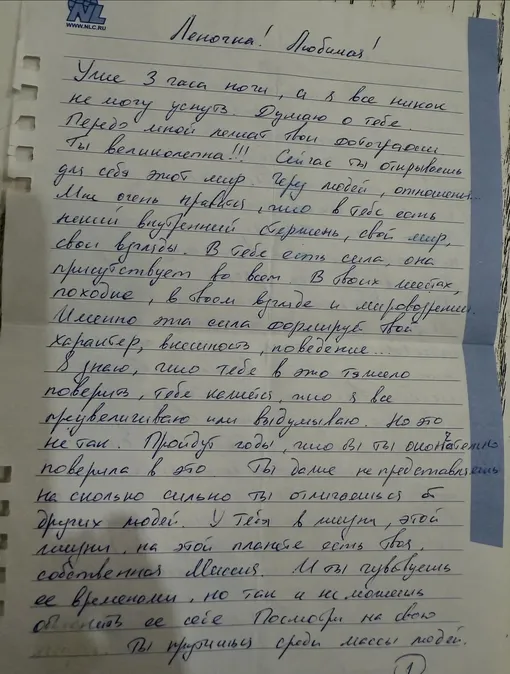 NL
WWW.NLC.RU
Леночка! Любимая!
Уже 3 часа ночи, а я все никак
не могу уснуть. Думаю о тебе.
Передо мной лежат твои фотографии
Ты великолепна!!! Сейчас ты открываешь
для себя этот мир. Через людей, отношения...
Мне очень нравится, что в тебе есть
некий внутренний стержень, свой мир,
свои взгляды. В тебе есть сила, она
присутствует во всем. В твоих жестах,
походке, в твоем взгляде и мировозрении.
Именно эта сила формирует твой
характер, внешность, поведение...
Я знаю, что тебе в это тяжело
поверить, тебе кажется, что я все
преувеличиваю или выдумываю. Но это
не так. Пройдут годы, что бы ты окончательно
поверила в это Ты даже не представляешь
на сколько сильно ты отличаешься от
других людей. У Тебя в жизни, этой
жизни, на этой планете есть твоя,
собственная Миссия. И ты чувствуешь
ее временами, но так и не можешь
ее себе Посмотри на свою
Ты крутишься среди массы людей.
1